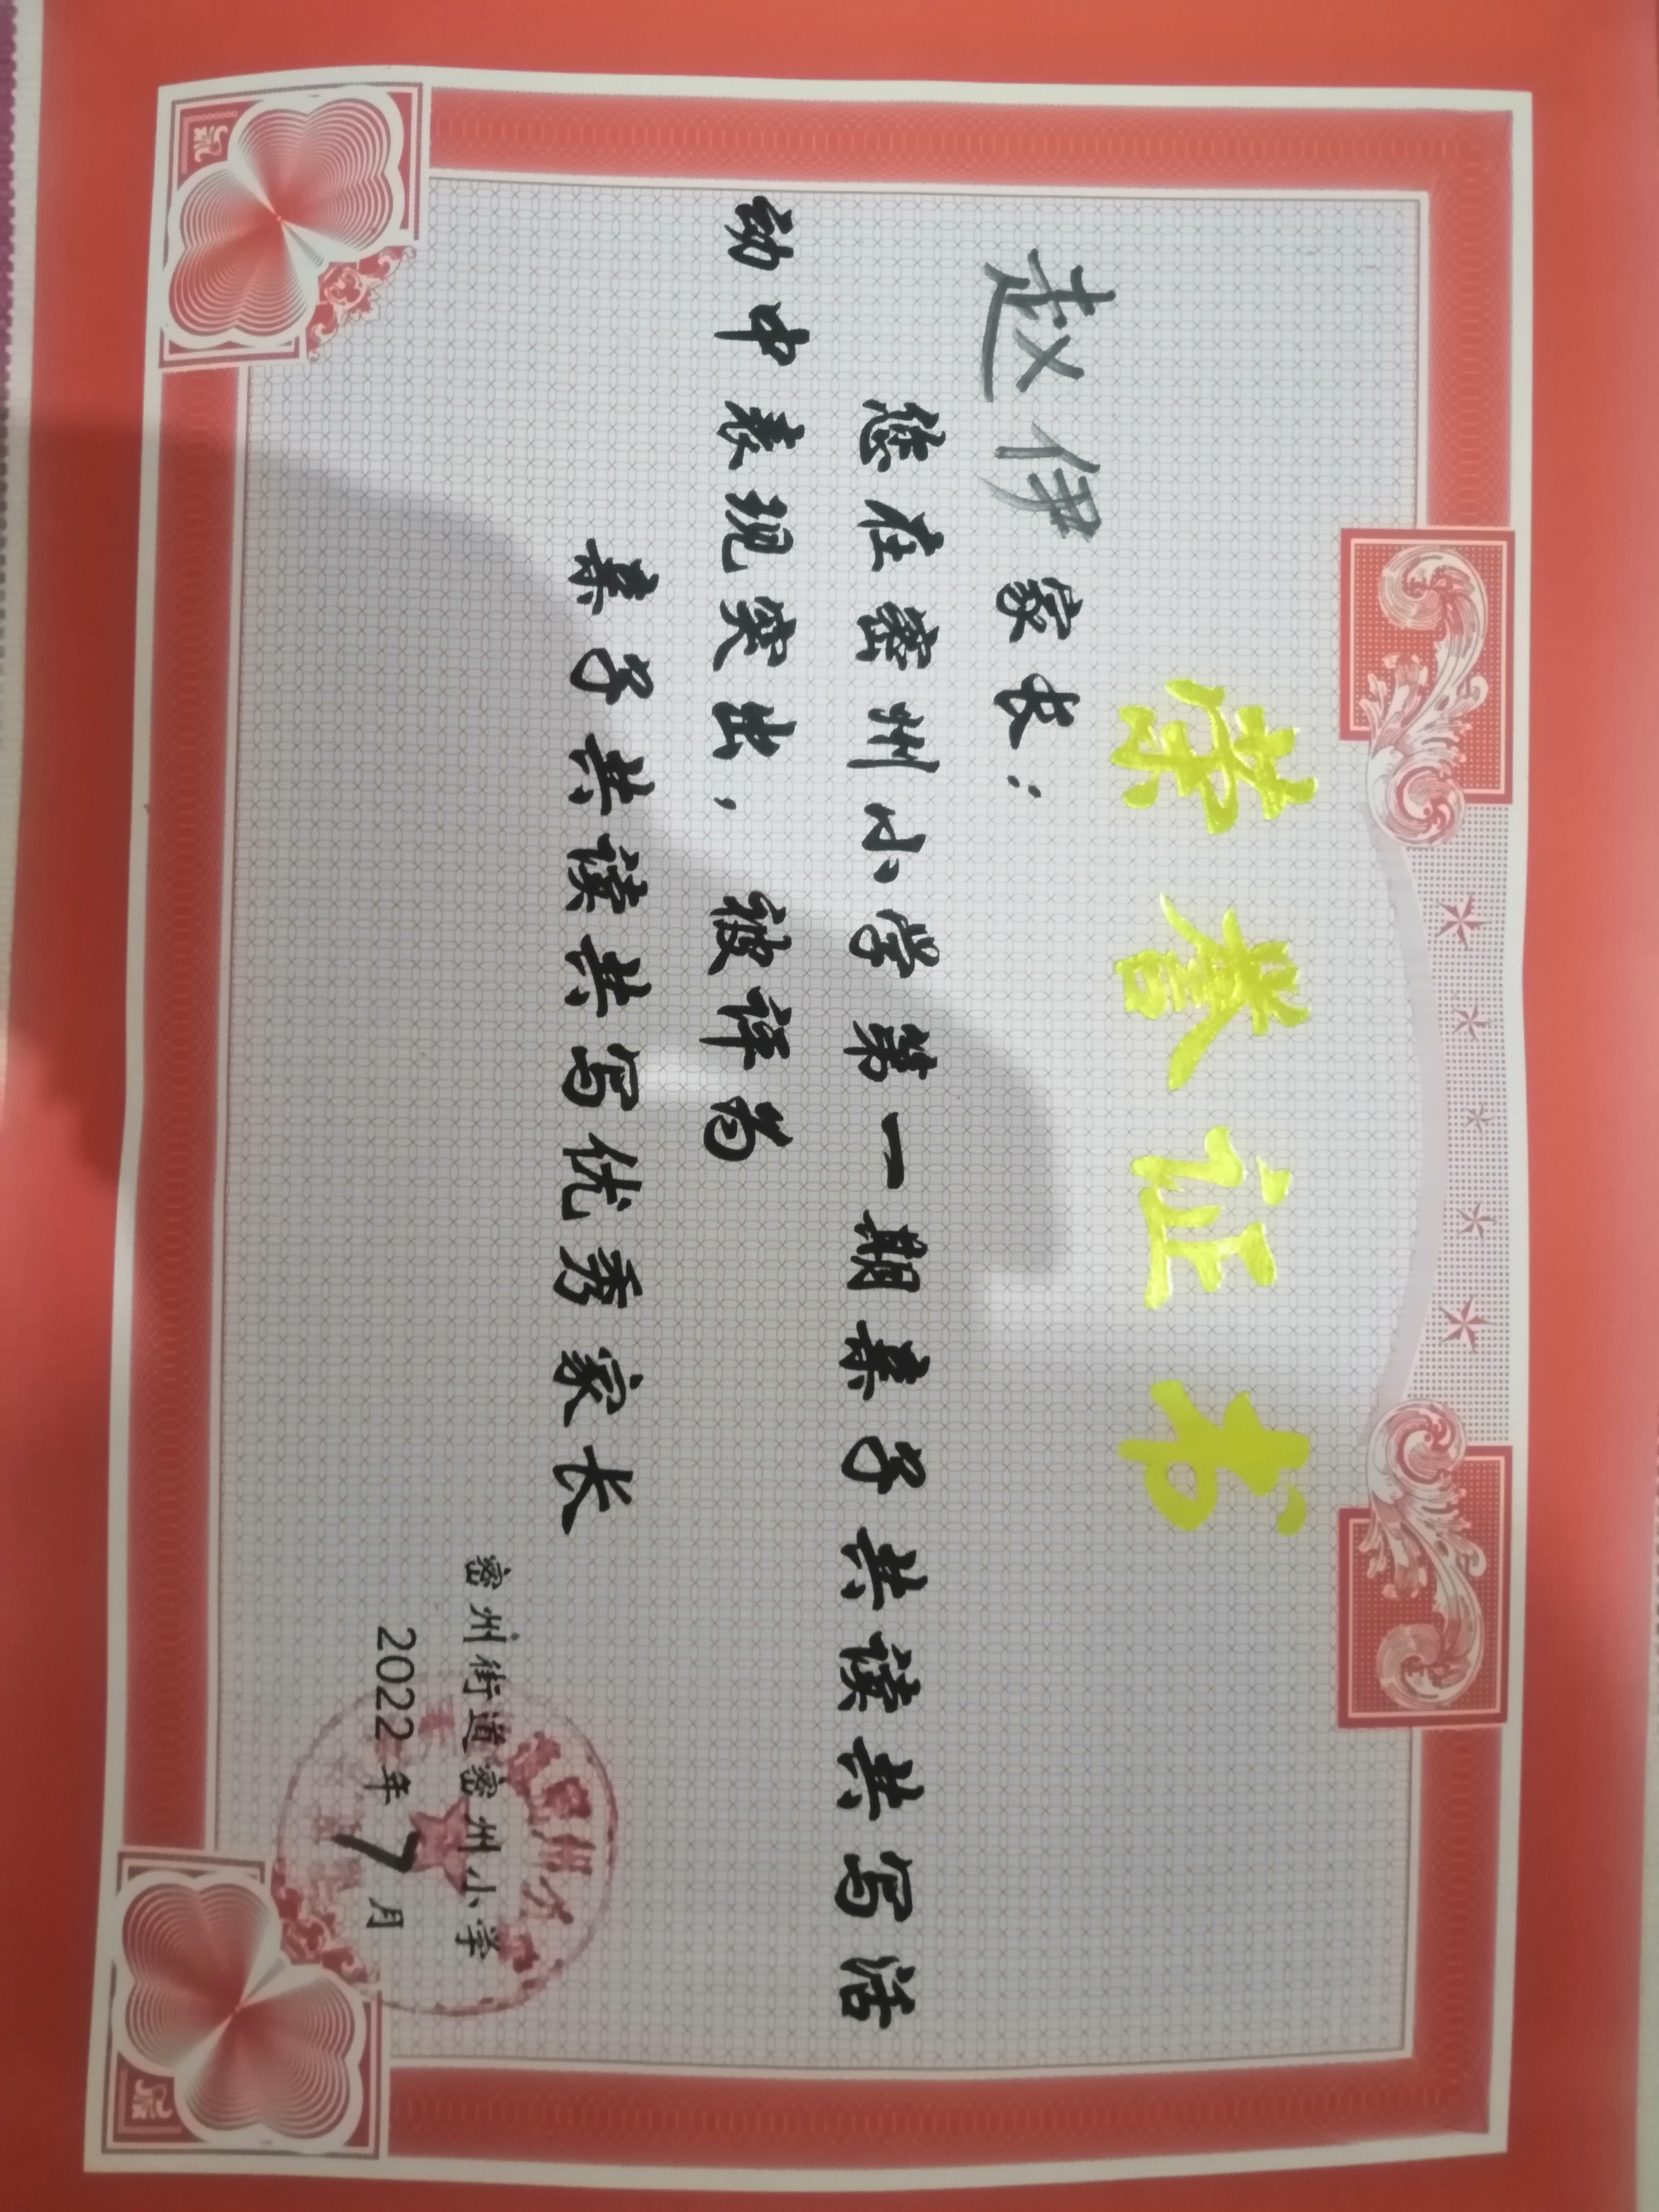 荣誉证书
赵伊家长：
您在密州小学第一期亲子共读共写活
动中表现突出，被评为
亲子共读共写优秀家长
密州街道密州小学
2022年7月